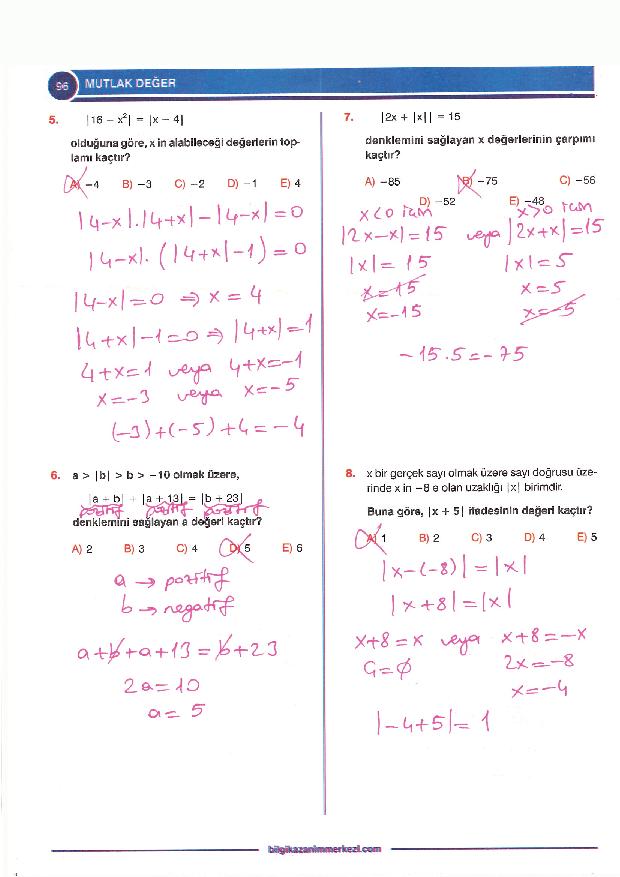 96 MUTLAK DEĞER
5. |16 – x²| = |x – 4|
olduğuna göre, x in alabileceği değerlerin top-
lamı kaçtır?
A) –4 B) –3 C) –2 D) –1 E) 4
|4-x|.|4+x|-|4-x|=0
|4-x|.(|4+x|-1)=0
|4-x|=0 ⇒ x=4
|4+x|-1=0 ⇒ |4+x|=1
4+x=1 veya 4+x=-1
x=-3 veya x=-5
(-3)+(-5)+4=-4
6. a > |b| > b > –10 olmak üzere,
|a + b| + |a + 13| = |b + 23|
pozitif pozitif pozitif
denklemini sağlayan a değeri kaçtır?
A) 2 B) 3 C) 4 D) 5 E) 6
a → pozitif
b → negatif
a+b+a+13=b+23
2a=10
a=5
7. |2x + |x|| = 15
denklemini sağlayan x değerlerinin çarpımı
kaçtır?
A) –85 B) –75 C) –56
D) –52 E) –48
x<0 için x>0 için
|2x-x|=15 veya |2x+x|=15
|x|=15 |x|=5
x=15 x=5
x=-15 x=-5
-15.5=-75
8. x bir gerçek sayı olmak üzere sayı doğrusu üze-
rinde x in –8 e olan uzaklığı |x| birimdir.
Buna göre, |x + 5| ifadesinin değeri kaçtır?
A) 1 B) 2 C) 3 D) 4 E) 5
|x-(-8)|=|x|
|x+8|=|x|
x+8=x veya x+8=-x
Ç=∅ 2x=-8
x=-4
|-4+5|=1
bilgikazanimmerkezi.com